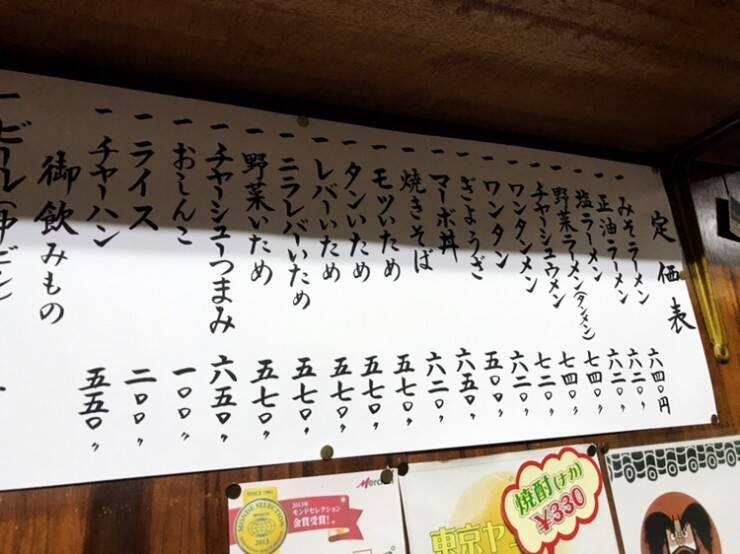 定価表
一 みそラーメン 六四〇円
一 正油ラーメン 六二〇〃
一 塩ラーメン 六二〇〃
一 野菜ラーメン(タンメン) 七四〇〃
一 チャーシュウメン 七四〇〃
一 ワンタンメン 七二〇〃
一 ワンタン 六二〇〃
一 ぎょうざ 五〇〇〃
一 マーボ丼 六五〇〃
一 焼きそば 六二〇〃
一 モツいため 五七〇〃
一 タンいため 五七〇〃
一 レバーいため 五七〇〃
一 ニラレバーいため 五七〇〃
一 野菜いため 五七〇〃
一 チャーシューつまみ 六五〇〃
一 おしんこ 一〇〇〃
一 ライス 二〇〇〃
一 チャーハン 五五〇〃
御飲みもの
一 ビール(中ビン)
焼酎(ナカ)
¥330
東京
SINCE 1961
MONDE SELECTION
2013
2013年
モンドセレクション
金賞受賞!